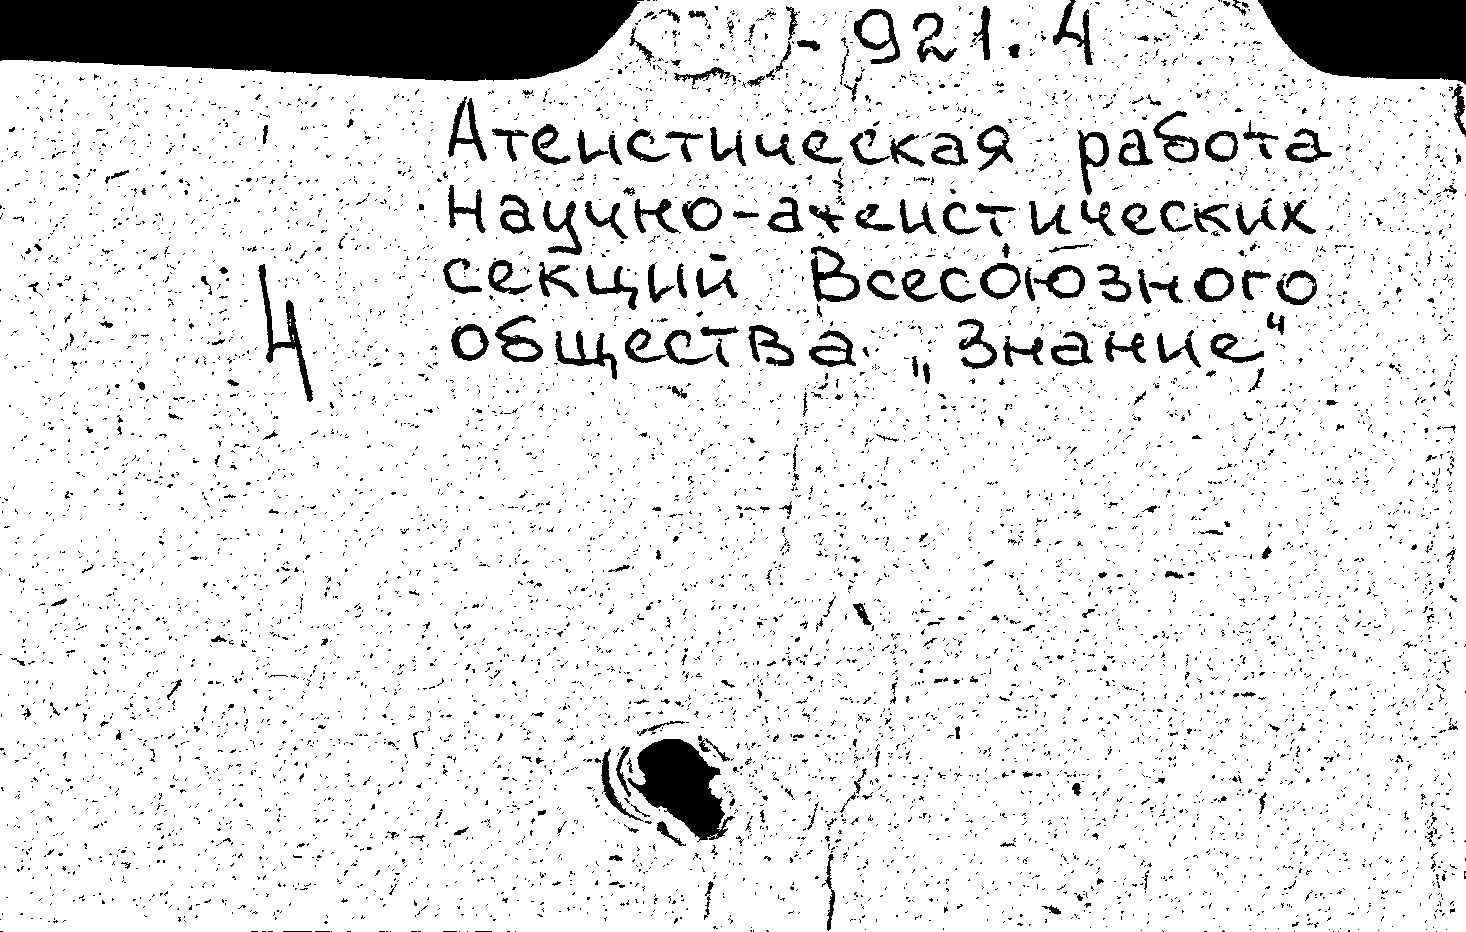 -921.4
Атеистическая работа
научно-атеистических
секций Всесоюзного
общества „Знание“
4